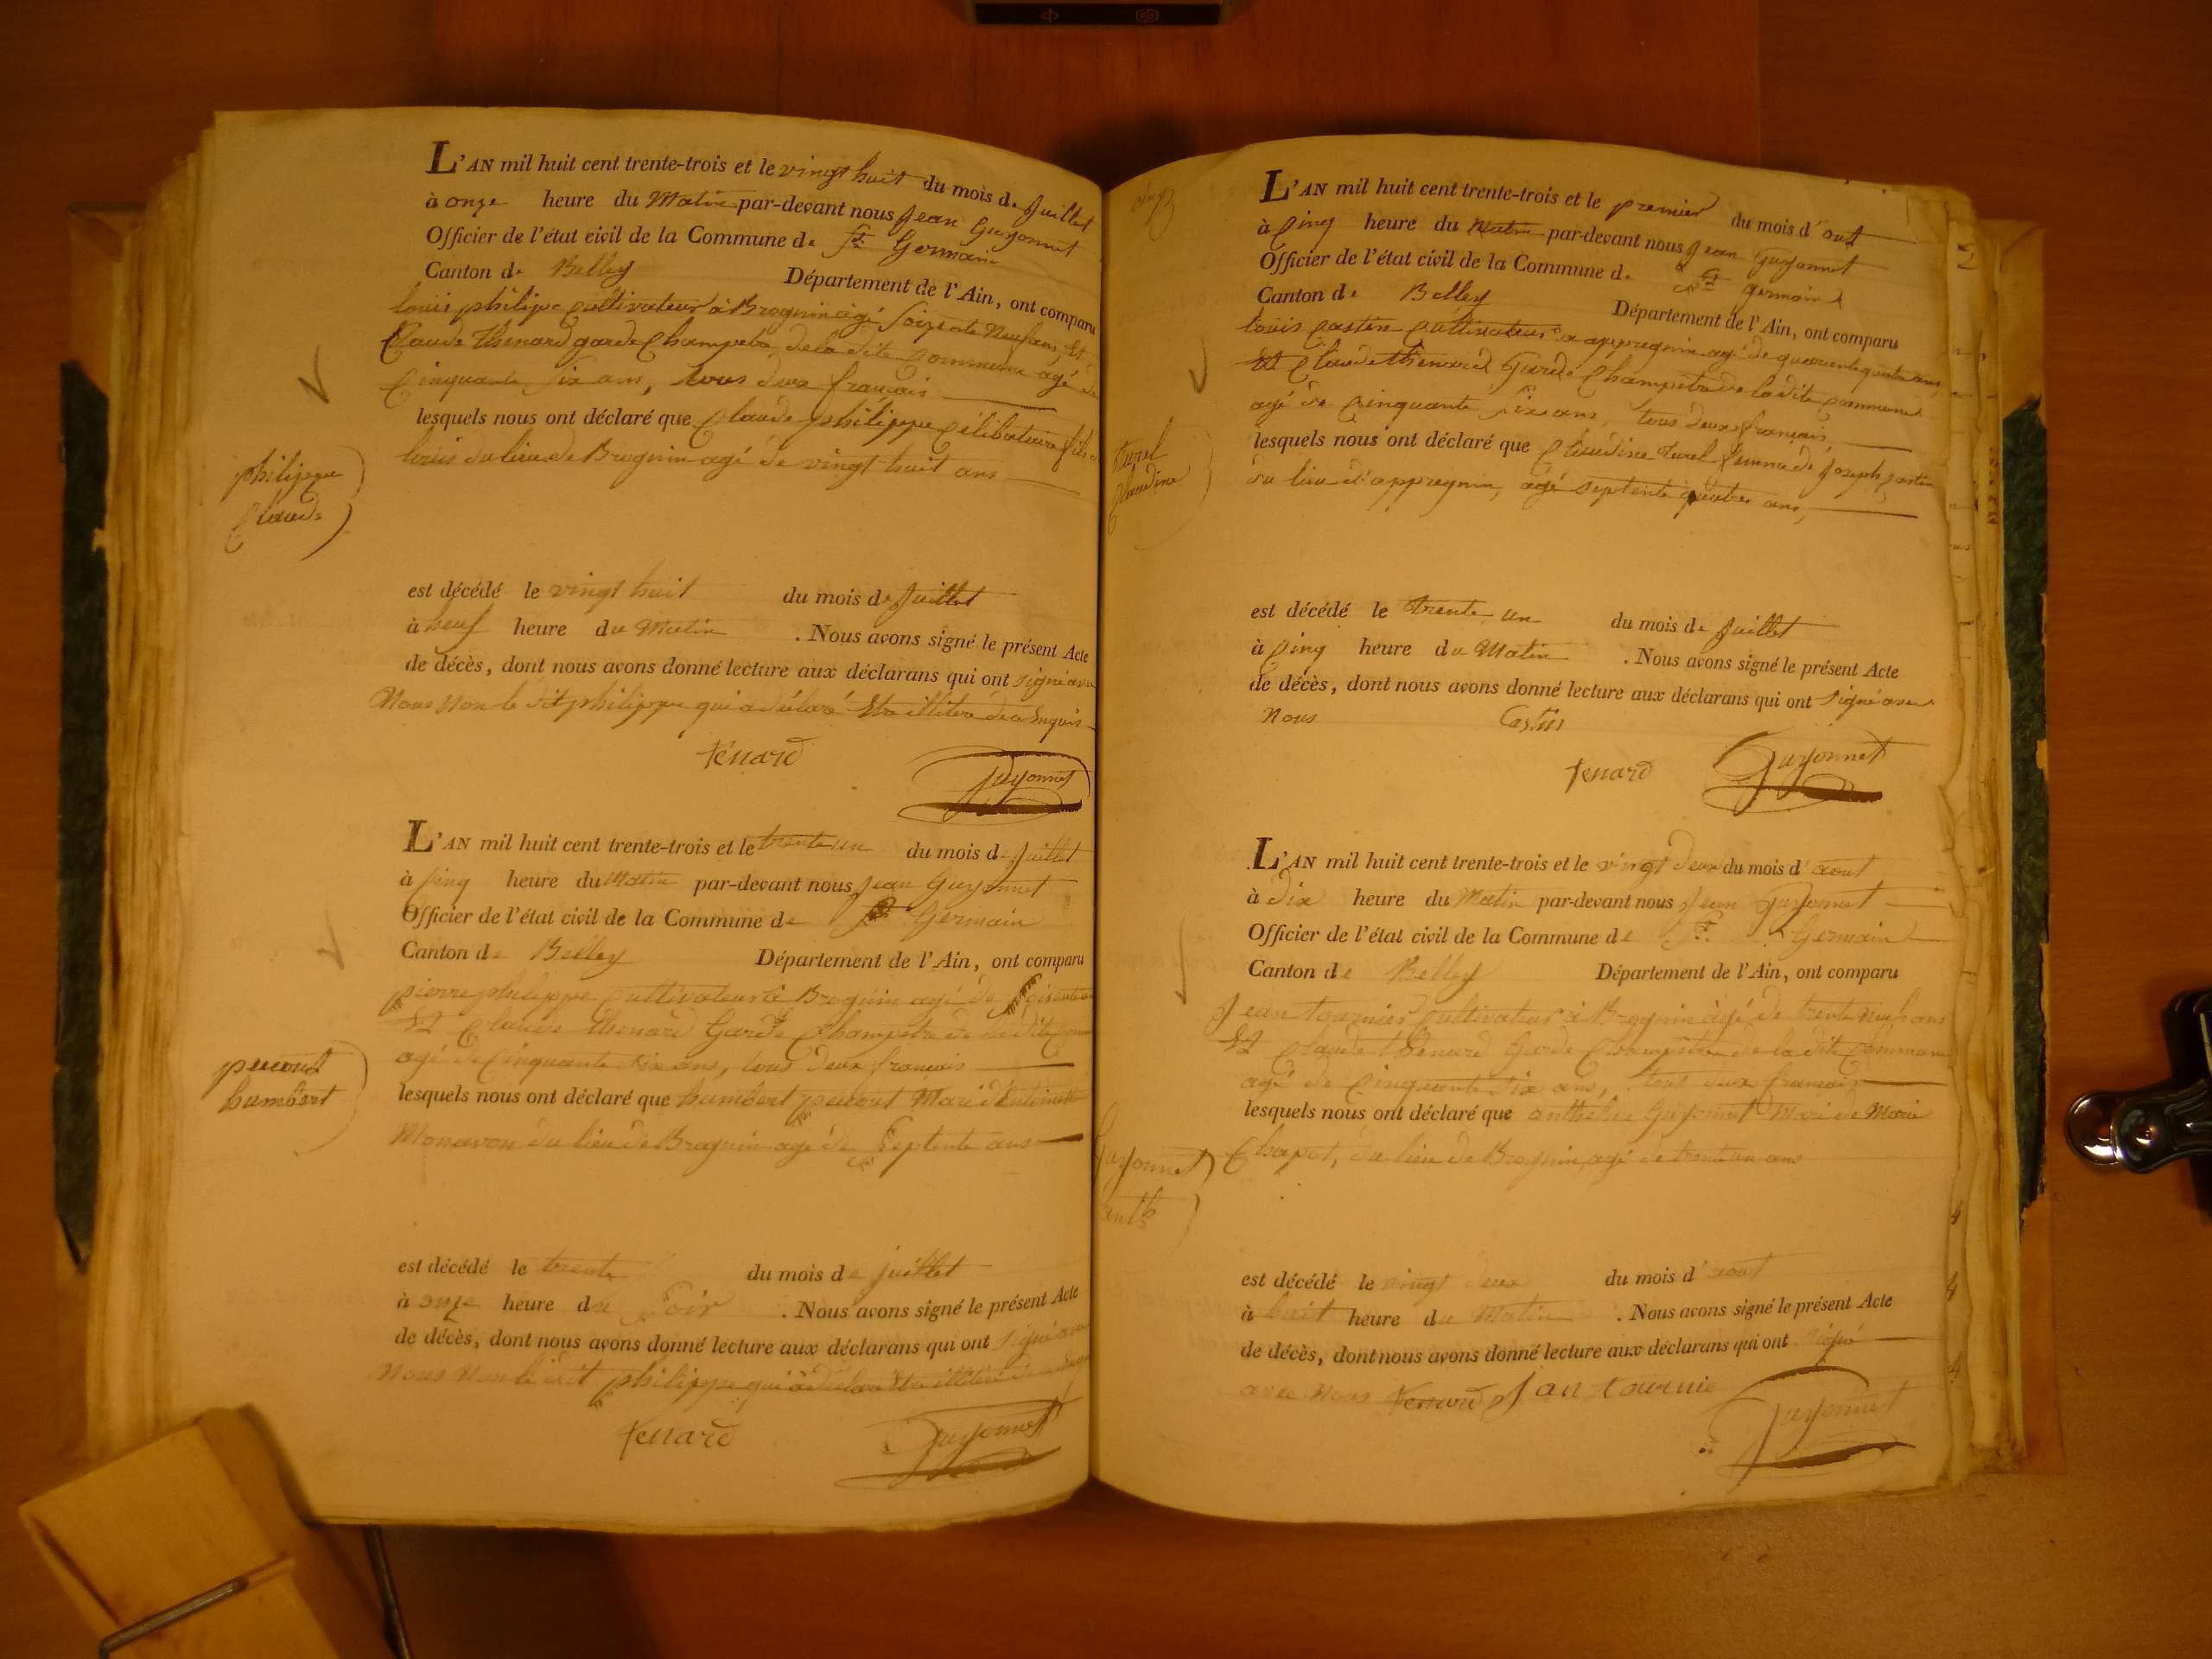 L'AN mil huit cent trente-trois et le vingt huit du mois de Juillet
à onze heure du Matin par-devant nous Jean Guyonnet
Officier de l'état civil de la Commune de St. Germain
Canton de Belley Département de l'Ain, ont comparu
louis philipe Cultivateur à Brognin agé soizente Neuf ans, Et
Claude Thenard garde Champetr de la dite Commune agé de
Cinquante six ans, tous deux français
lesquels nous ont déclaré que Claude philippe Célibataire fils
louis du lieu de Brognin agé de vingt huit ans
philippe
Claude
est décédé le vingt huit du mois de Juillet
à neuf heure du Matin . Nous avons signé le présent Acte
de décès, dont nous avons donné lecture aux déclarans qui ont signé avec
Nous Non le dit philippe qui a déclaré Etre illiteré de a Enquis
tenard
Guyonnet
L'AN mil huit cent trente-trois et le trente un du mois de Juillet
à Cinq heure du Matin par-devant nous Jean Guyonnet
Officier de l'état civil de la Commune de St Germain
Canton de Belley Département de l'Ain, ont comparu
pierre philippe Cultivateur à Brognin agé de soisente
Et Claude thenard Garde Champetre de la dite
agé de Cinquante six ans, tous deux français
lesquels nous ont déclaré que humbert pecout Mari d'Entoinette
Monavon du lieu de Brognin agé de septente ans
pecout
humbert
est décédé le trente du mois de Juillet
à onze heure du Soir . Nous avons signé le présent Acte
de décès, dont nous avons donné lecture aux déclarans qui ont signé avec
Nous Non le dit philippe qui a déclaré Etre illiteré
tenard
Guyonnet
L'AN mil huit cent trente-trois et le premier du mois d'out
à Cinq heure du Matin par-devant nous Jean Guyonnet
Officier de l'état civil de la Commune de St germain
Canton de Belley Département de l'Ain, ont comparu
louis Castin Cultivateur a appregnin agé de quarente quatre ans,
Et Claude thenard Garde Champetre de la dite Commune
agé de Cinquante six ans, tous deux français
lesquels nous ont déclaré que Claudine turel femme de Joseph Castin
du lieu d'appregnin, agé septente quatre ans,
turel
Claudine
est décédé le trente un du mois de Juillet
à Cinq heure du Matin . Nous avons signé le présent Acte
de décès, dont nous avons donné lecture aux déclarans qui ont signé avec
Nous Castin
tenard Guyonnet
L'AN mil huit cent trente-trois et le vingt deux du mois d'aout
à dix heure du Matin par-devant nous Jean Guyonnet
Officier de l'état civil de la Commune de St. Germain
Canton de Belley Département de l'Ain, ont comparu
Jean tournier Cultivateur à Brognin âgé de trente neuf ans
Et Claude thenard Garde Champetre de la dite Commune
agé de Cinquante six ans, tous deux français
lesquels nous ont déclaré que anthelme Guyonnet Mari de Marie
Chapot, du lieu de Brognin, agé de trente un ans
Guyonnet
anth
est décédé le vingt deux du mois d'aout
à huit heure du Matin . Nous avons signé le présent Acte
de décès, dont nous avons donné lecture aux déclarans qui ont signé
avec Nous tenard Jan tournie
Guyonnet